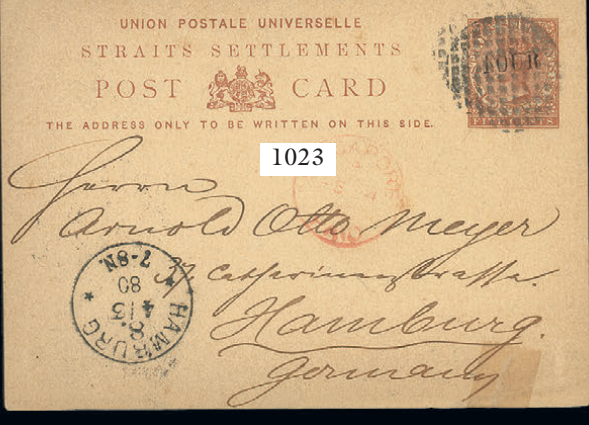 UNION POSTALE UNIVERSELLE
STRAITS SETTLEMENTS
POST CARD
THE ADDRESS ONLY TO BE WRITTEN ON THIS SIDE.
FOUR
1023
Herrn
Arnold Otto Meyer
37 Catharinenstrasse.
Hamburg.
Germany
HAMBURG
8.
4 15
80
7-8N